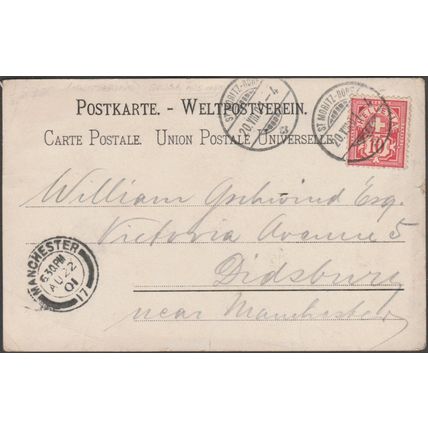 POSTKARTE. - WELTPOSTVEREIN.
CARTE POSTALE. UNION POSTALE UNIVERSELLE.
ST. MORITZ-DORF
20 VIII 01-4
ST. MORITZ-DORF
20 VIII 01-4
HELVETIA
10
William Gschwind Esq.
Victoria Avenue 5
Didsbury
near Manchester
MANCHESTER
6.30 PM
AU 22
01
17